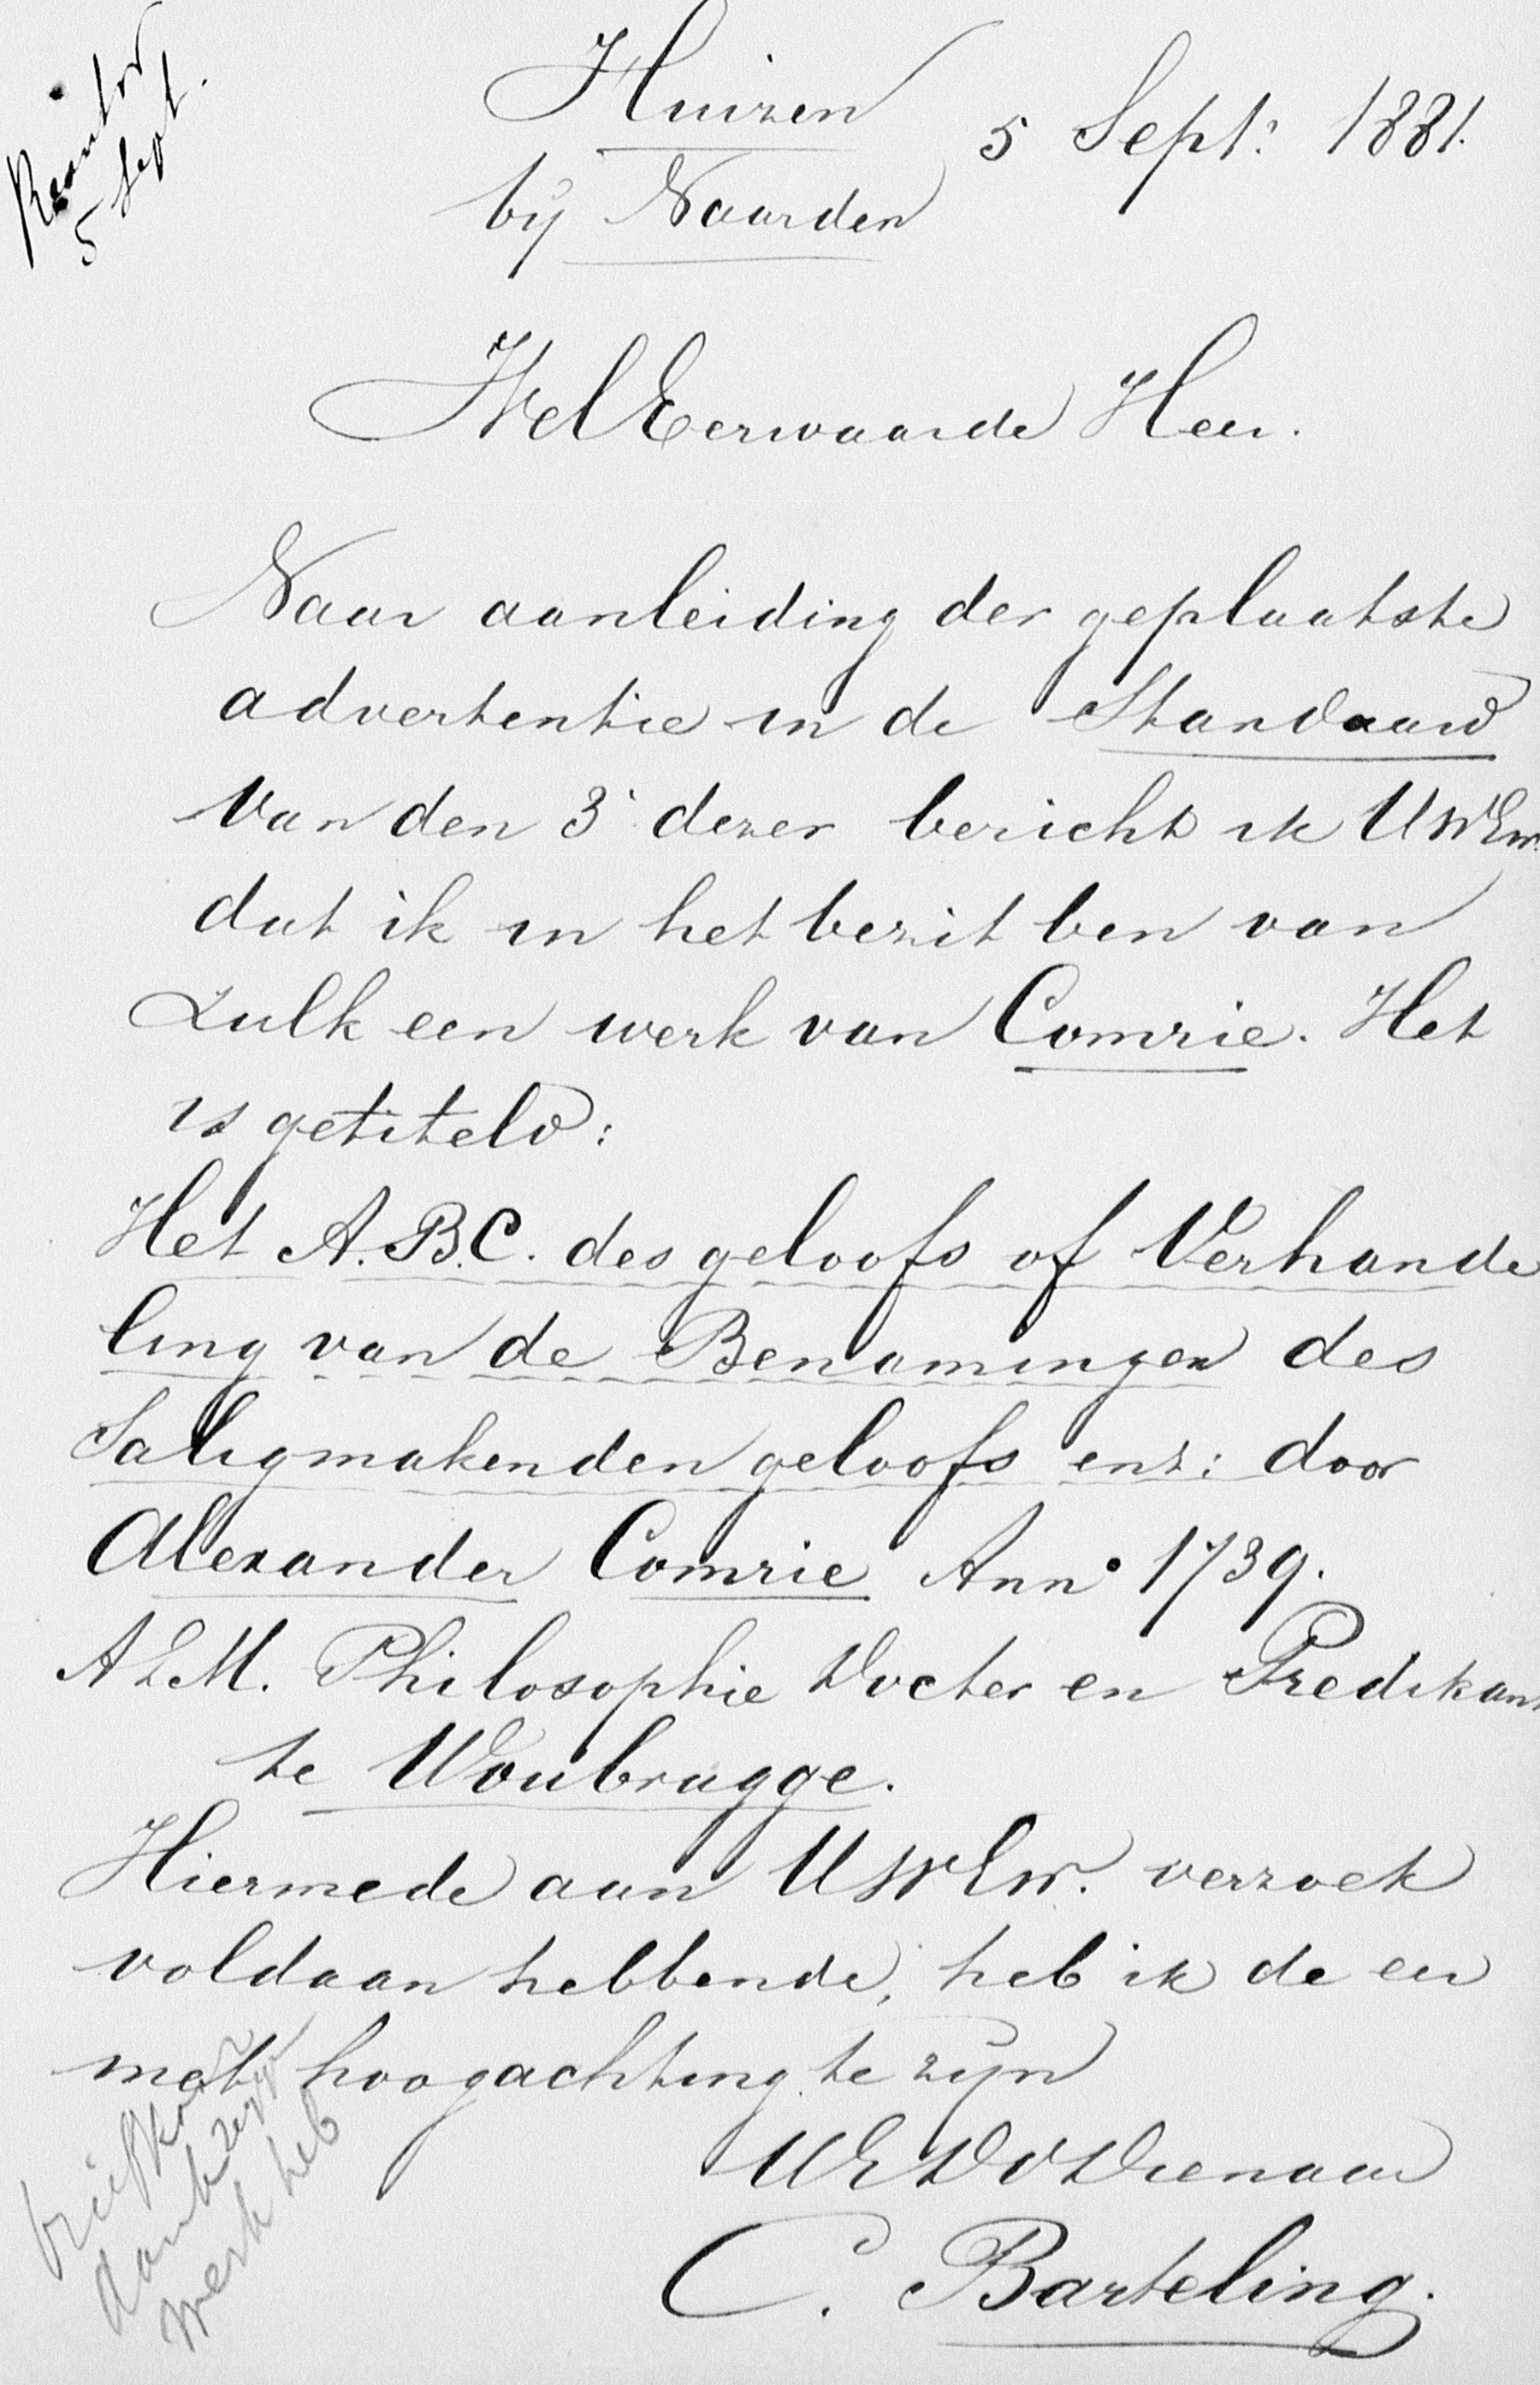 5 Sept.
Huizen 5 Sept: 1881.
bij Naarden
WelEerwaarde Heer.
Naar aanleiding der geplaatste
advertentie in de Standaard
van den 3' dezer bericht ik UWEw.
dat ik in het bezit ben van
zulk een werk van Comrie. Het
is getiteld:
Het A.B.C. des geloofs of Verhande
ling van de Benamingen des
Saligmakenden geloofs enz: door
Alexander Comrie Ann° 1739.
A.L.M. Philosophie Docter en Predikant
te Woubrugge.
Hiermede aan UWEw. verzoek
voldaan hebbende, heb ik de eer
met hoogachting te zijn
UEDVDienaar
C. Barteling.
briefkaart
dankzegg
werk heb